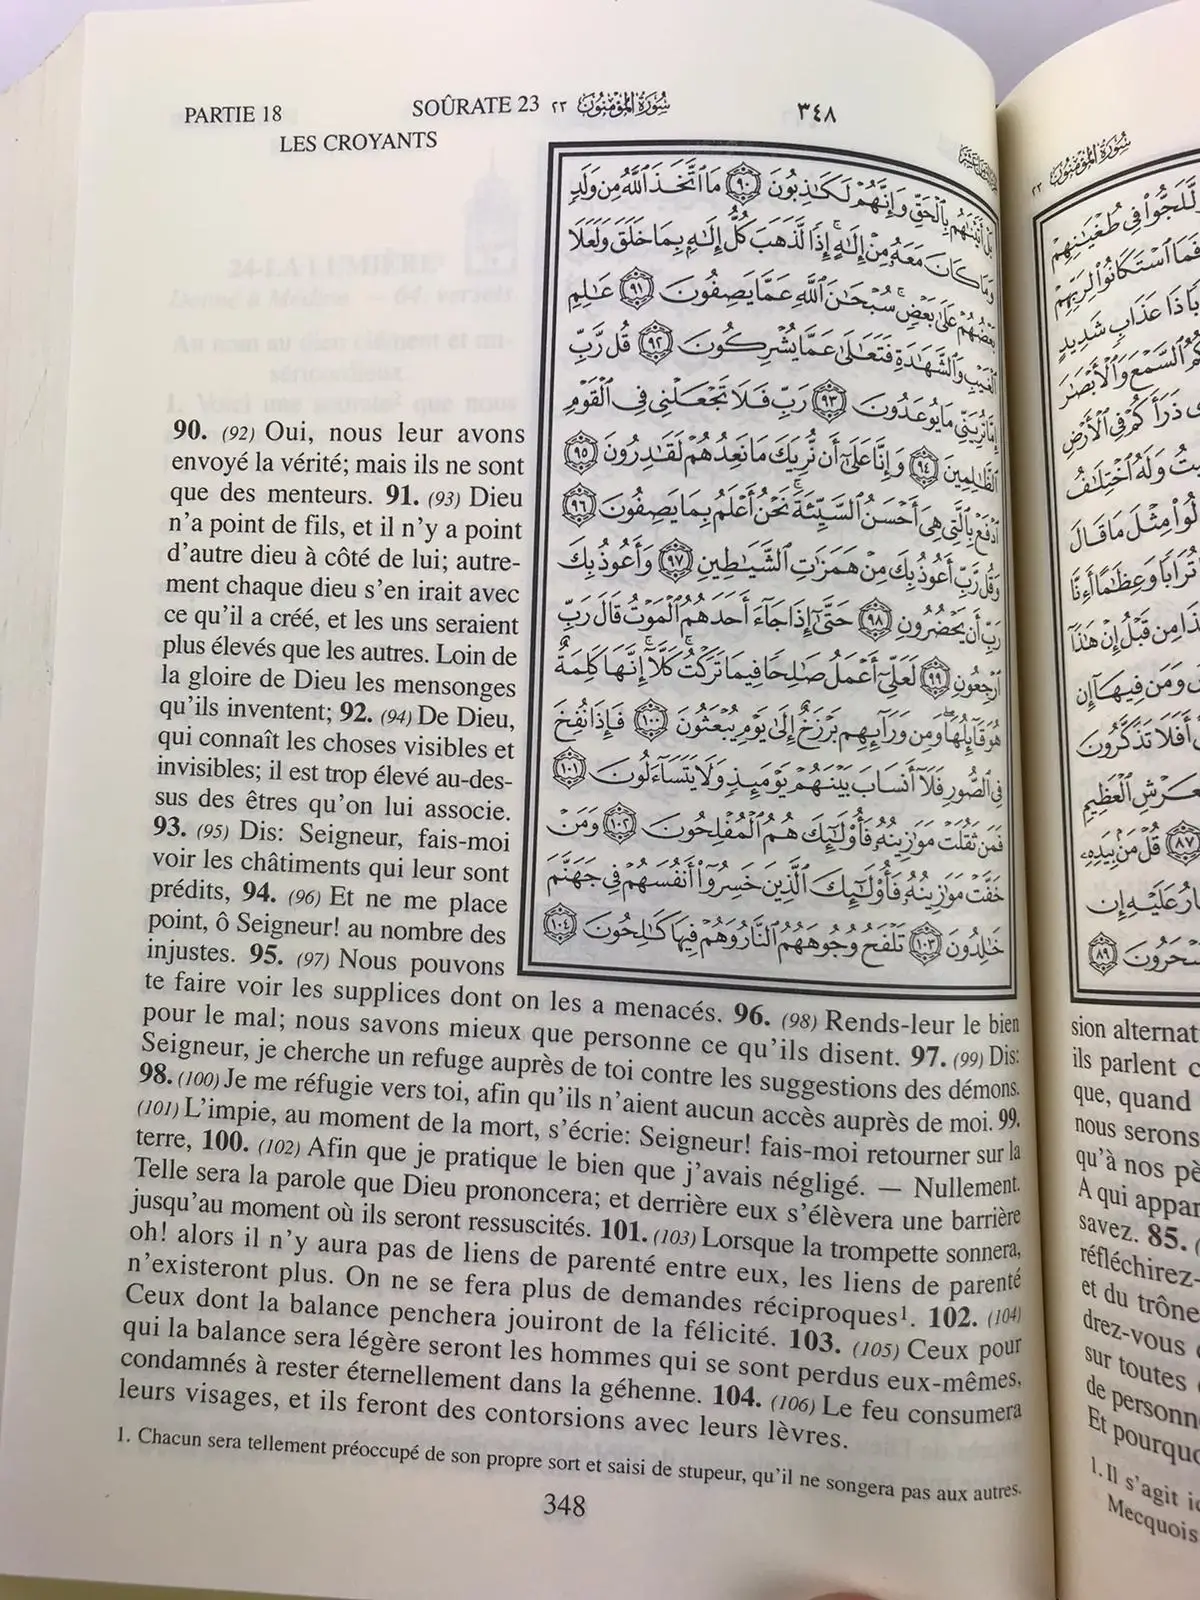 PARTIE 18
SOÛRATE 23 ٢٣ سُورَةُ المُؤْمِنُونَ
٣٤٨
LES CROYANTS
بَلْ أَتَيْنَٰهُم بِٱلْحَقِّ وَإِنَّهُمْ لَكَٰذِبُونَ ٩٠ مَا ٱتَّخَذَ ٱللَّهُ مِن وَلَدٍ
وَمَا كَانَ مَعَهُۥ مِنْ إِلَٰهٍ ۚ إِذًا لَّذَهَبَ كُلُّ إِلَٰهٍۭ بِمَا خَلَقَ وَلَعَلَا
بَعْضُهُمْ عَلَىٰ بَعْضٍ ۚ سُبْحَٰنَ ٱللَّهِ عَمَّا يَصِفُونَ ٩١ عَٰلِمِ
ٱلْغَيْبِ وَٱلشَّهَٰدَةِ فَتَعَٰلَىٰ عَمَّا يُشْرِكُونَ ٩٢ قُل رَّبِّ
إِمَّا تُرِيَنِّى مَا يُوعَدُونَ ٩٣ رَبِّ فَلَا تَجْعَلْنِى فِى ٱلْقَوْمِ
ٱلظَّٰلِمِينَ ٩٤ وَإِنَّا عَلَىٰٓ أَن نُّرِيَكَ مَا نَعِدُهُمْ لَقَٰدِرُونَ ٩٥
ٱدْفَعْ بِٱلَّتِى هِىَ أَحْسَنُ ٱلسَّيِّئَةَ ۚ نَحْنُ أَعْلَمُ بِمَا يَصِفُونَ ٩٦
وَقُل رَّبِّ أَعُوذُ بِكَ مِنْ هَمَزَٰتِ ٱلشَّيَٰطِينِ ٩٧ وَأَعُوذُ بِكَ
رَبِّ أَن يَحْضُرُونِ ٩٨ حَتَّىٰٓ إِذَا جَآءَ أَحَدَهُمُ ٱلْمَوْتُ قَالَ رَبِّ
ٱرْجِعُونِ ٩٩ لَعَلِّىٓ أَعْمَلُ صَٰلِحًا فِيمَا تَرَكْتُ ۚ كَلَّآ ۚ إِنَّهَا كَلِمَةٌ
هُوَ قَآئِلُهَا ۖ وَمِن وَرَآئِهِم بَرْزَخٌ إِلَىٰ يَوْمِ يُبْعَثُونَ ١٠٠ فَإِذَا نُفِخَ
فِى ٱلصُّورِ فَلَآ أَنسَابَ بَيْنَهُمْ يَوْمَئِذٍ وَلَا يَتَسَآءَلُونَ ١٠١
فَمَن ثَقُلَتْ مَوَٰزِينُهُۥ فَأُو۟لَٰٓئِكَ هُمُ ٱلْمُفْلِحُونَ ١٠٢ وَمَنْ
خَفَّتْ مَوَٰزِينُهُۥ فَأُو۟لَٰٓئِكَ ٱلَّذِينَ خَسِرُوٓا۟ أَنفُسَهُمْ فِى جَهَنَّمَ
خَٰلِدُونَ ١٠٣ تَلْفَحُ وُجُوهَهُمُ ٱلنَّارُ وَهُمْ فِيهَا كَٰلِحُونَ ١٠٤
90. (92) Oui, nous leur avons
envoyé la vérité; mais ils ne sont
que des menteurs. 91. (93) Dieu
n'a point de fils, et il n'y a point
d'autre dieu à côté de lui; autre-
ment chaque dieu s'en irait avec
ce qu'il a créé, et les uns seraient
plus élevés que les autres. Loin de
la gloire de Dieu les mensonges
qu'ils inventent; 92. (94) De Dieu,
qui connaît les choses visibles et
invisibles; il est trop élevé au-des-
sus des êtres qu'on lui associe.
93. (95) Dis: Seigneur, fais-moi
voir les châtiments qui leur sont
prédits, 94. (96) Et ne me place
point, ô Seigneur! au nombre des
injustes. 95. (97) Nous pouvons
te faire voir les supplices dont on les a menacés. 96. (98) Rends-leur le bien
pour le mal; nous savons mieux que personne ce qu'ils disent. 97. (99) Dis:
Seigneur, je cherche un refuge auprès de toi contre les suggestions des démons.
98. (100) Je me réfugie vers toi, afin qu'ils n'aient aucun accès auprès de moi. 99.
(101) L'impie, au moment de la mort, s'écrie: Seigneur! fais-moi retourner sur la
terre, 100. (102) Afin que je pratique le bien que j'avais négligé. — Nullement.
Telle sera la parole que Dieu prononcera; et derrière eux s'élèvera une barrière
jusqu'au moment où ils seront ressuscités. 101. (103) Lorsque la trompette sonnera,
oh! alors il n'y aura pas de liens de parenté entre eux, les liens de parenté
n'existeront plus. On ne se fera plus de demandes réciproques¹. 102. (104)
Ceux dont la balance penchera jouiront de la félicité. 103. (105) Ceux pour
qui la balance sera légère seront les hommes qui se sont perdus eux-mêmes,
condamnés à rester éternellement dans la géhenne. 104. (106) Le feu consumera
leurs visages, et ils feront des contorsions avec leurs lèvres.
1. Chacun sera tellement préoccupé de son propre sort et saisi de stupeur, qu'il ne songera pas aux autres.
348
٢٣ سُورَةُ المُؤْمِنُونَ
لَّلَجُّوا۟ فِى طُغْيَٰنِهِمْ
فَمَا ٱسْتَكَانُوا۟ لِرَبِّهِمْ
ذَا عَذَابٍ شَدِيدٍ
ٱلسَّمْعَ وَٱلْأَبْصَٰرَ
ذَرَأَكُمْ فِى ٱلْأَرْضِ
وَلَهُ ٱخْتِلَٰفُ
مِثْلَ مَا قَالَ
تُرَابًا وَعِظَٰمًا أَءِنَّا
مِن قَبْلُ إِنْ هَٰذَا
وَمَن فِيهَآ إِن
أَفَلَا تَذَكَّرُونَ
ٱلْعَظِيمِ
٨٧ قُلْ مَنۢ بِيَدِهِۦ
عَلَيْهِ إِن
٨٩
sion alternat
ils parlent c
que, quand
nous serons
qu'à nos pè
A qui appar
savez. 85. (
réfléchirez-
et du trône
drez-vous
sur toutes
de personn
Et pourquo
1. Il s'agit ic
Mecquois